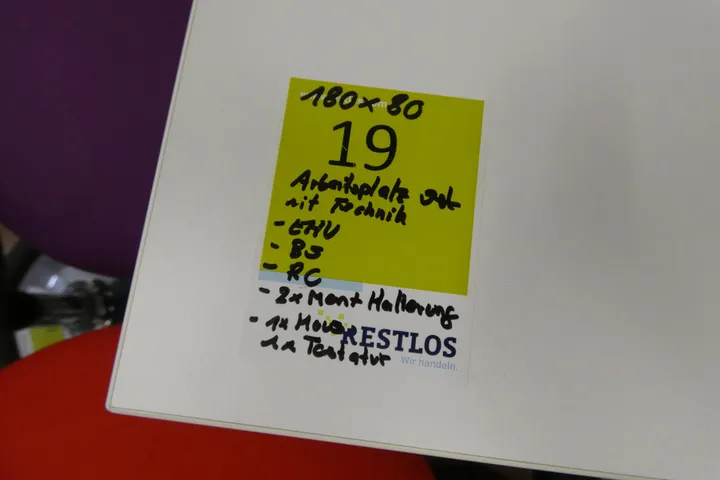 180x80
19
Arbeitsplatz
mit Technik
- EHV
- BS
- RC
- 2x Mont Halterung
- 1x Maus
1x Tastatur
RESTLOS
Wir handeln.